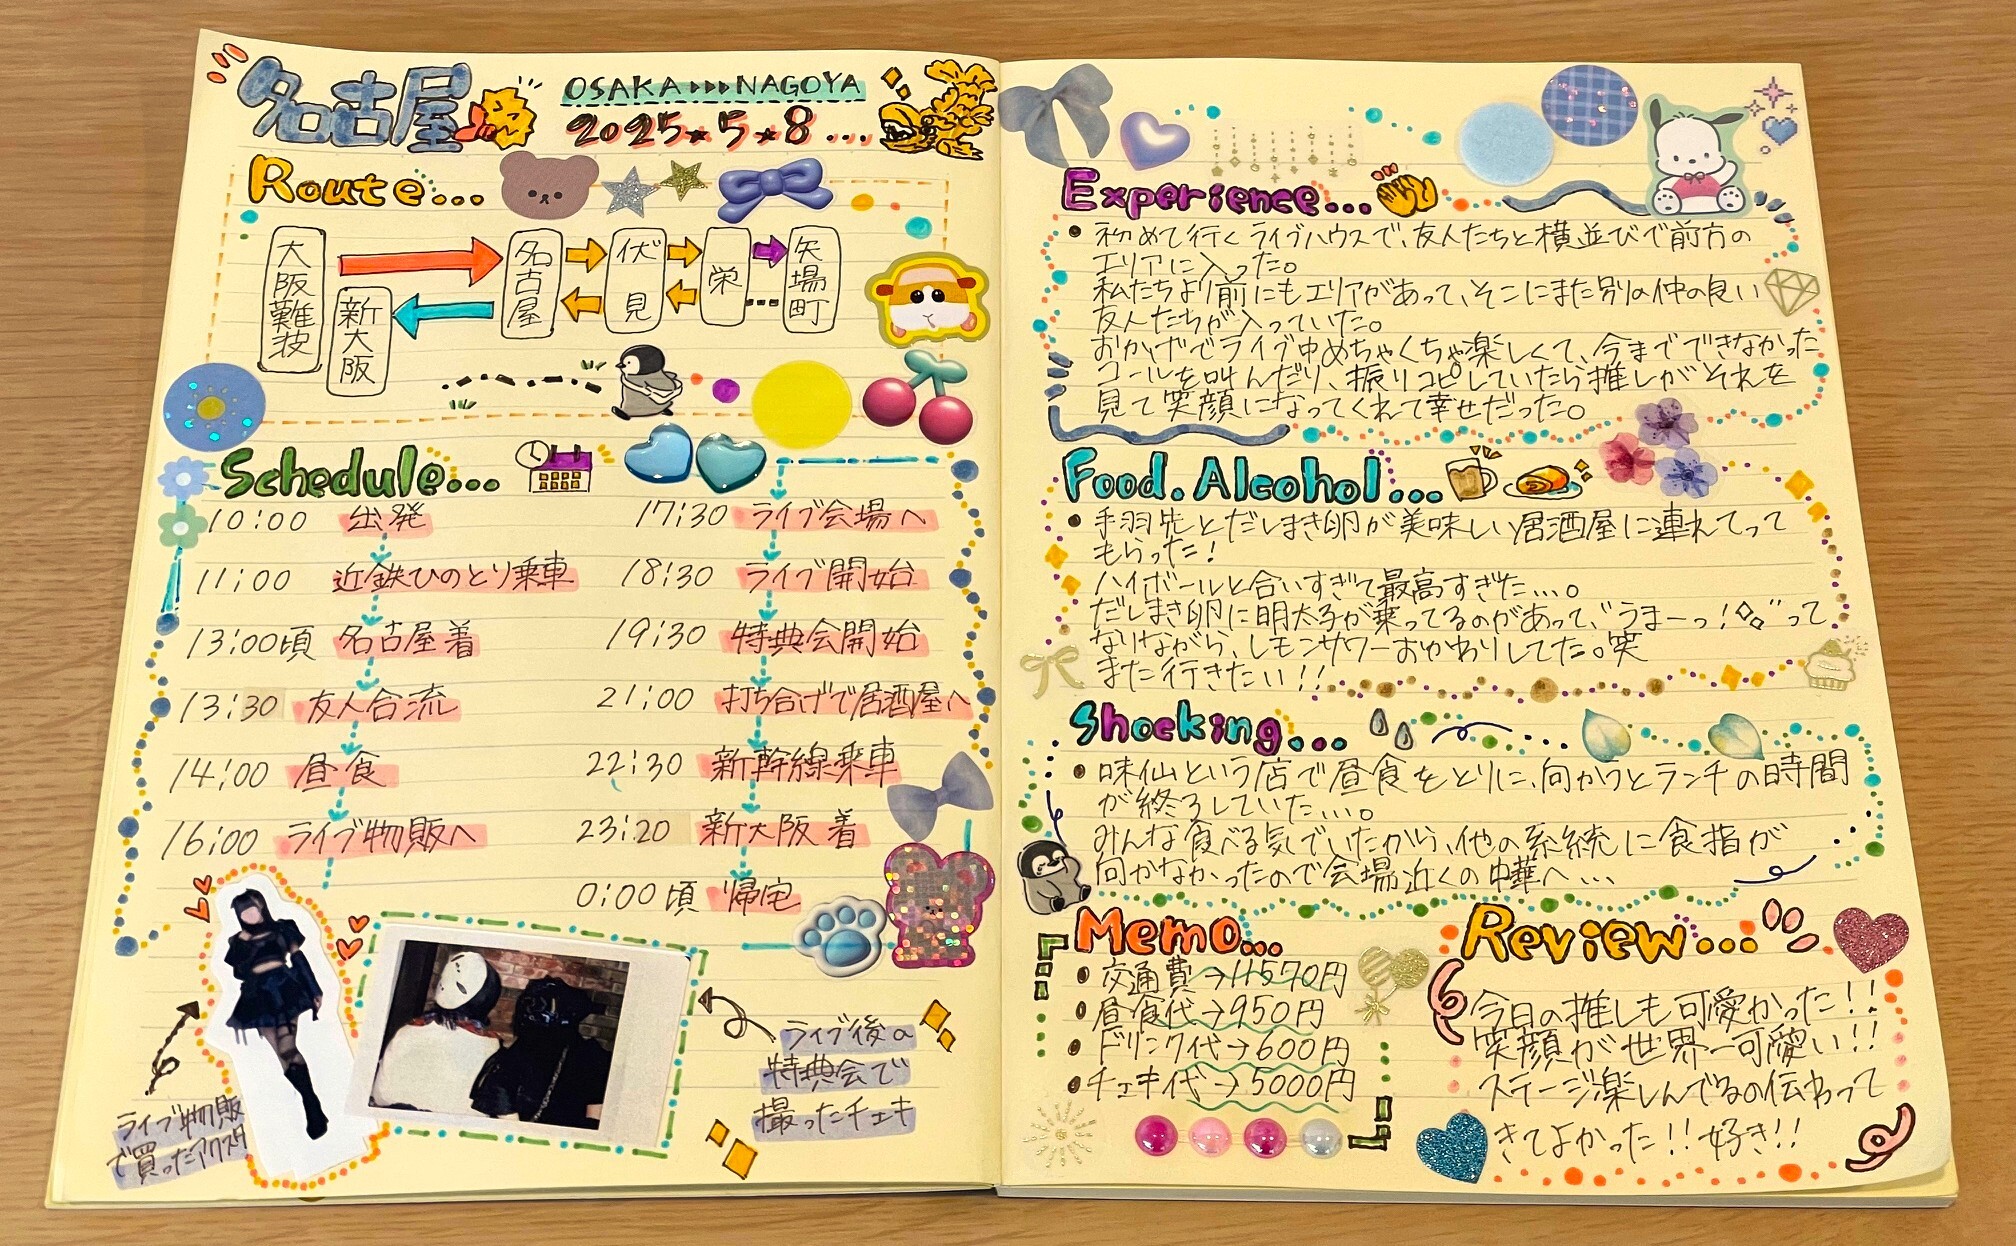 名古屋
OSAKA▸▸▸NAGOYA
2025★5★8....
Route...
大阪難波
新大阪
名古屋
伏見
栄
矢場町
Schedule...
10:00 出発
11:00 近鉄ひのとり乗車
13:00頃 名古屋着
13:30 友人合流
14:00 昼食
16:00 ライブ物販へ
17:30 ライブ会場へ
18:30 ライブ開始
19:30 特典会開始
21:00 打ち合げで居酒屋へ
22:30 新幹線乗車
23:20 新大阪 着
0:00頃 帰宅
ライブ物販
で買ったアクスタ
ライブ後の
特典会で
撮ったチェキ
Experience...
• 初めて行くライブハウスで、友人たちと横並びで前方の
エリアに入った。
私たちより前にもエリアがあって、そこにまた別の仲の良い
友人たちが入っていた。
おかげでライブ中めちゃくちゃ楽しくて、今までできなかった
コールを叫んだり、振りコピしていたら推しがそれを
見て笑顔になってくれて幸せだった。
Food.Alcohol...
• 手羽先とだしまき卵が美味しい居酒屋に連れてって
もらった!
ハイボールと合いすぎて最高すぎた...。
だしまき卵に明太子が乗ってるのがあって、"うまーっ!✧"って
なりながら、レモンサワーおかわりしてた。笑
また行きたい!!
Shocking...
• 味仙という店で昼食をとりに、向かうとランチの時間
が終了していた...。
みんな食べる気でいたから、他の系統に食指が
向かなかったので会場近くの中華へ...
Memo...
• 交通費→11570円
• 昼食代→950円
• ドリンク代→600円
• チェキ代→5000円
Review...
今日の推しも可愛かった!!
笑顔が世界一可愛い!!
ステージ楽しんでるの伝わって
きてよかった!!好き!!